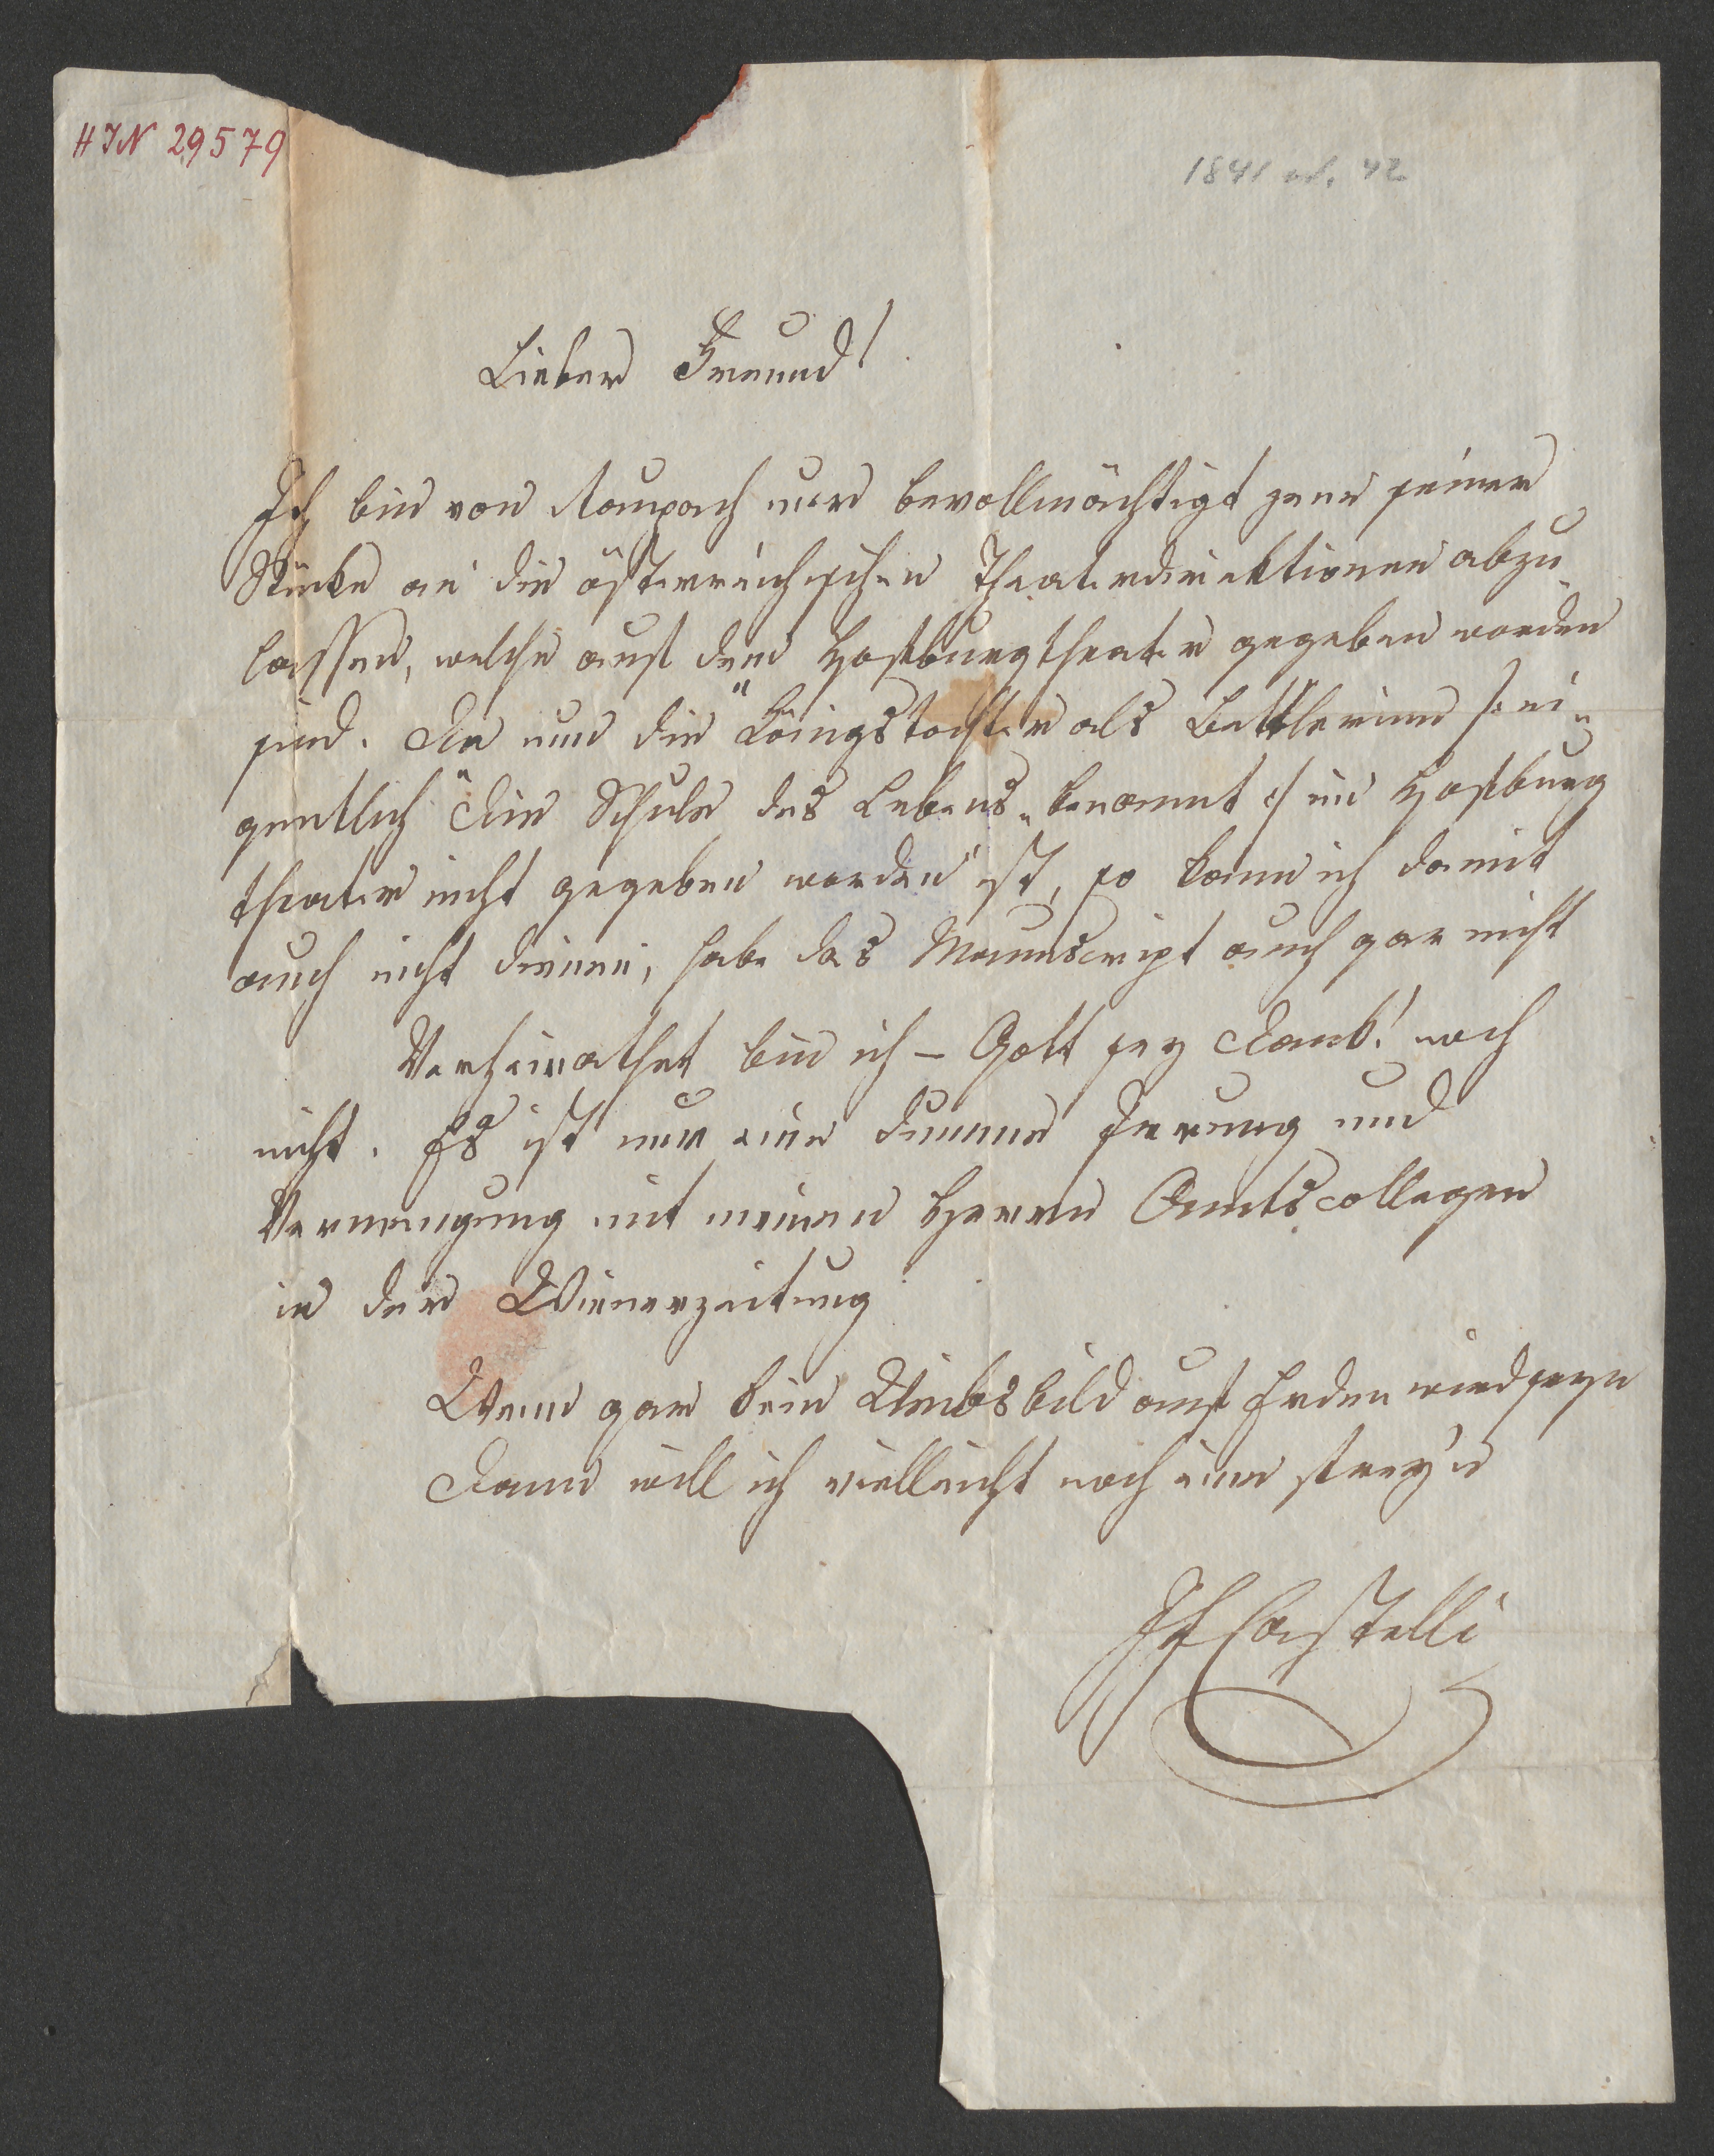 HIN 29579
1841 od. 42
Lieber Freund!
Ich bin von Raupach nur bevollmächtigt jene seiner
Stücke an die österreichischen Theaterdirektionen abzu
lassen, welche auf dem Hofburgtheater gegeben worden
sind. Da nun die "Königstochter als Bettlerinn /: ei-
gentlich "Die Schule des Lebens" benannt :/ im Hofburg
theater nicht gegeben worden ist, so kann ich damit
auch nicht dienen, habe das Manuscript auch gar nicht
Verheirathet bin ich – Gott sey Dank! noch
nicht. Es ist nur eine dumme Irrung und
Vermengung mit meinem Herrn Amtscollegen
in der Wienerzeitung
Wenn gar kein Weibsbild auf Erden wird seyn
Dann will ich vielleicht noch eine frey'n
IFCastelli